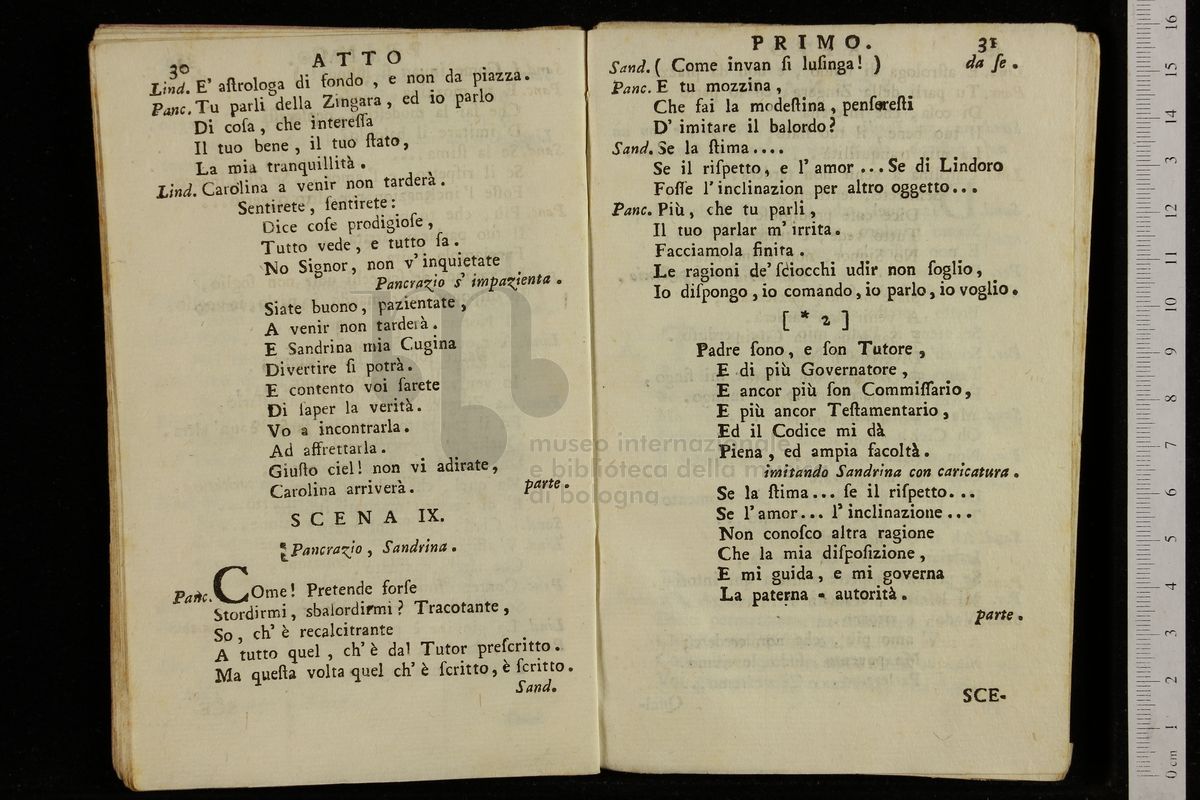 30
ATTO
Lind. E' aſtrologa di fondo , e non da piazza.
Panc. Tu parli della Zingara , ed io parlo
Di coſa , che intereſſa
Il tuo bene , il tuo ſtato,
La mia tranquillità .
Lind. Carolina a venir non tarderà .
Sentirete , ſentirete :
Dice coſe prodigioſe ,
Tutto vede , e tutto ſa .
No Signor , non v' inquietate
Pancrazio s' impazienta .
Siate buono , pazientate ,
A venir non tarderà .
E Sandrina mia Cugina
Divertire ſi potrà .
E contento voi ſarete
Di ſaper la verità .
Vo a incontrarla .
Ad affrettarla .
Giuſto ciel ! non vi adirate,
Carolina arriverà . parte .
SCENA IX.
Pancrazio , Sandrina .
Panc. COme ! Pretende forſe
Stordirmi , sbalordirmi ? Tracotante ,
So , ch' è recalcitrante
A tutto quel , ch' è dal Tutor preſcritto .
Ma queſta volta quel ch' è ſcritto, è ſcritto .
Sand.
PRIMO.
31
Sand. ( Come invan ſi luſinga ! ) da ſe .
Panc. E tu mozzina ,
Che fai la modeſtina , penſareſti
D' imitare il balordo ?
Sand. Se la ſtima ....
Se il riſpetto, e l' amor ... Se di Lindoro
Foſſe l' inclinazion per altro oggetto ...
Panc. Più, che tu parli ,
Il tuo parlar m' irrita .
Facciamola finita .
Le ragioni de' ſciocchi udir non ſoglio ,
Io diſpongo , io comando , io parlo , io voglio .
[ * 2 ]
Padre ſono , e ſon Tutore ,
E di più Governatore ,
E ancor più ſon Commiſſario ,
E più ancor Teſtamentario ,
Ed il Codice mi dà
Piena , ed ampia facoltà .
imitando Sandrina con caricatura .
Se la ſtima ... ſe il riſpetto ...
Se l' amor ... l' inclinazione ...
Non conoſco altra ragione
Che la mia diſpoſizione ,
E mi guida , e mi governa
La paterna - autorità .
parte .
SCE-
museo internazionale
e biblioteca della musica
di bologna
0 cm 1 2 3 4 5 6 7 8 9 10 11 12 13 14 15 16